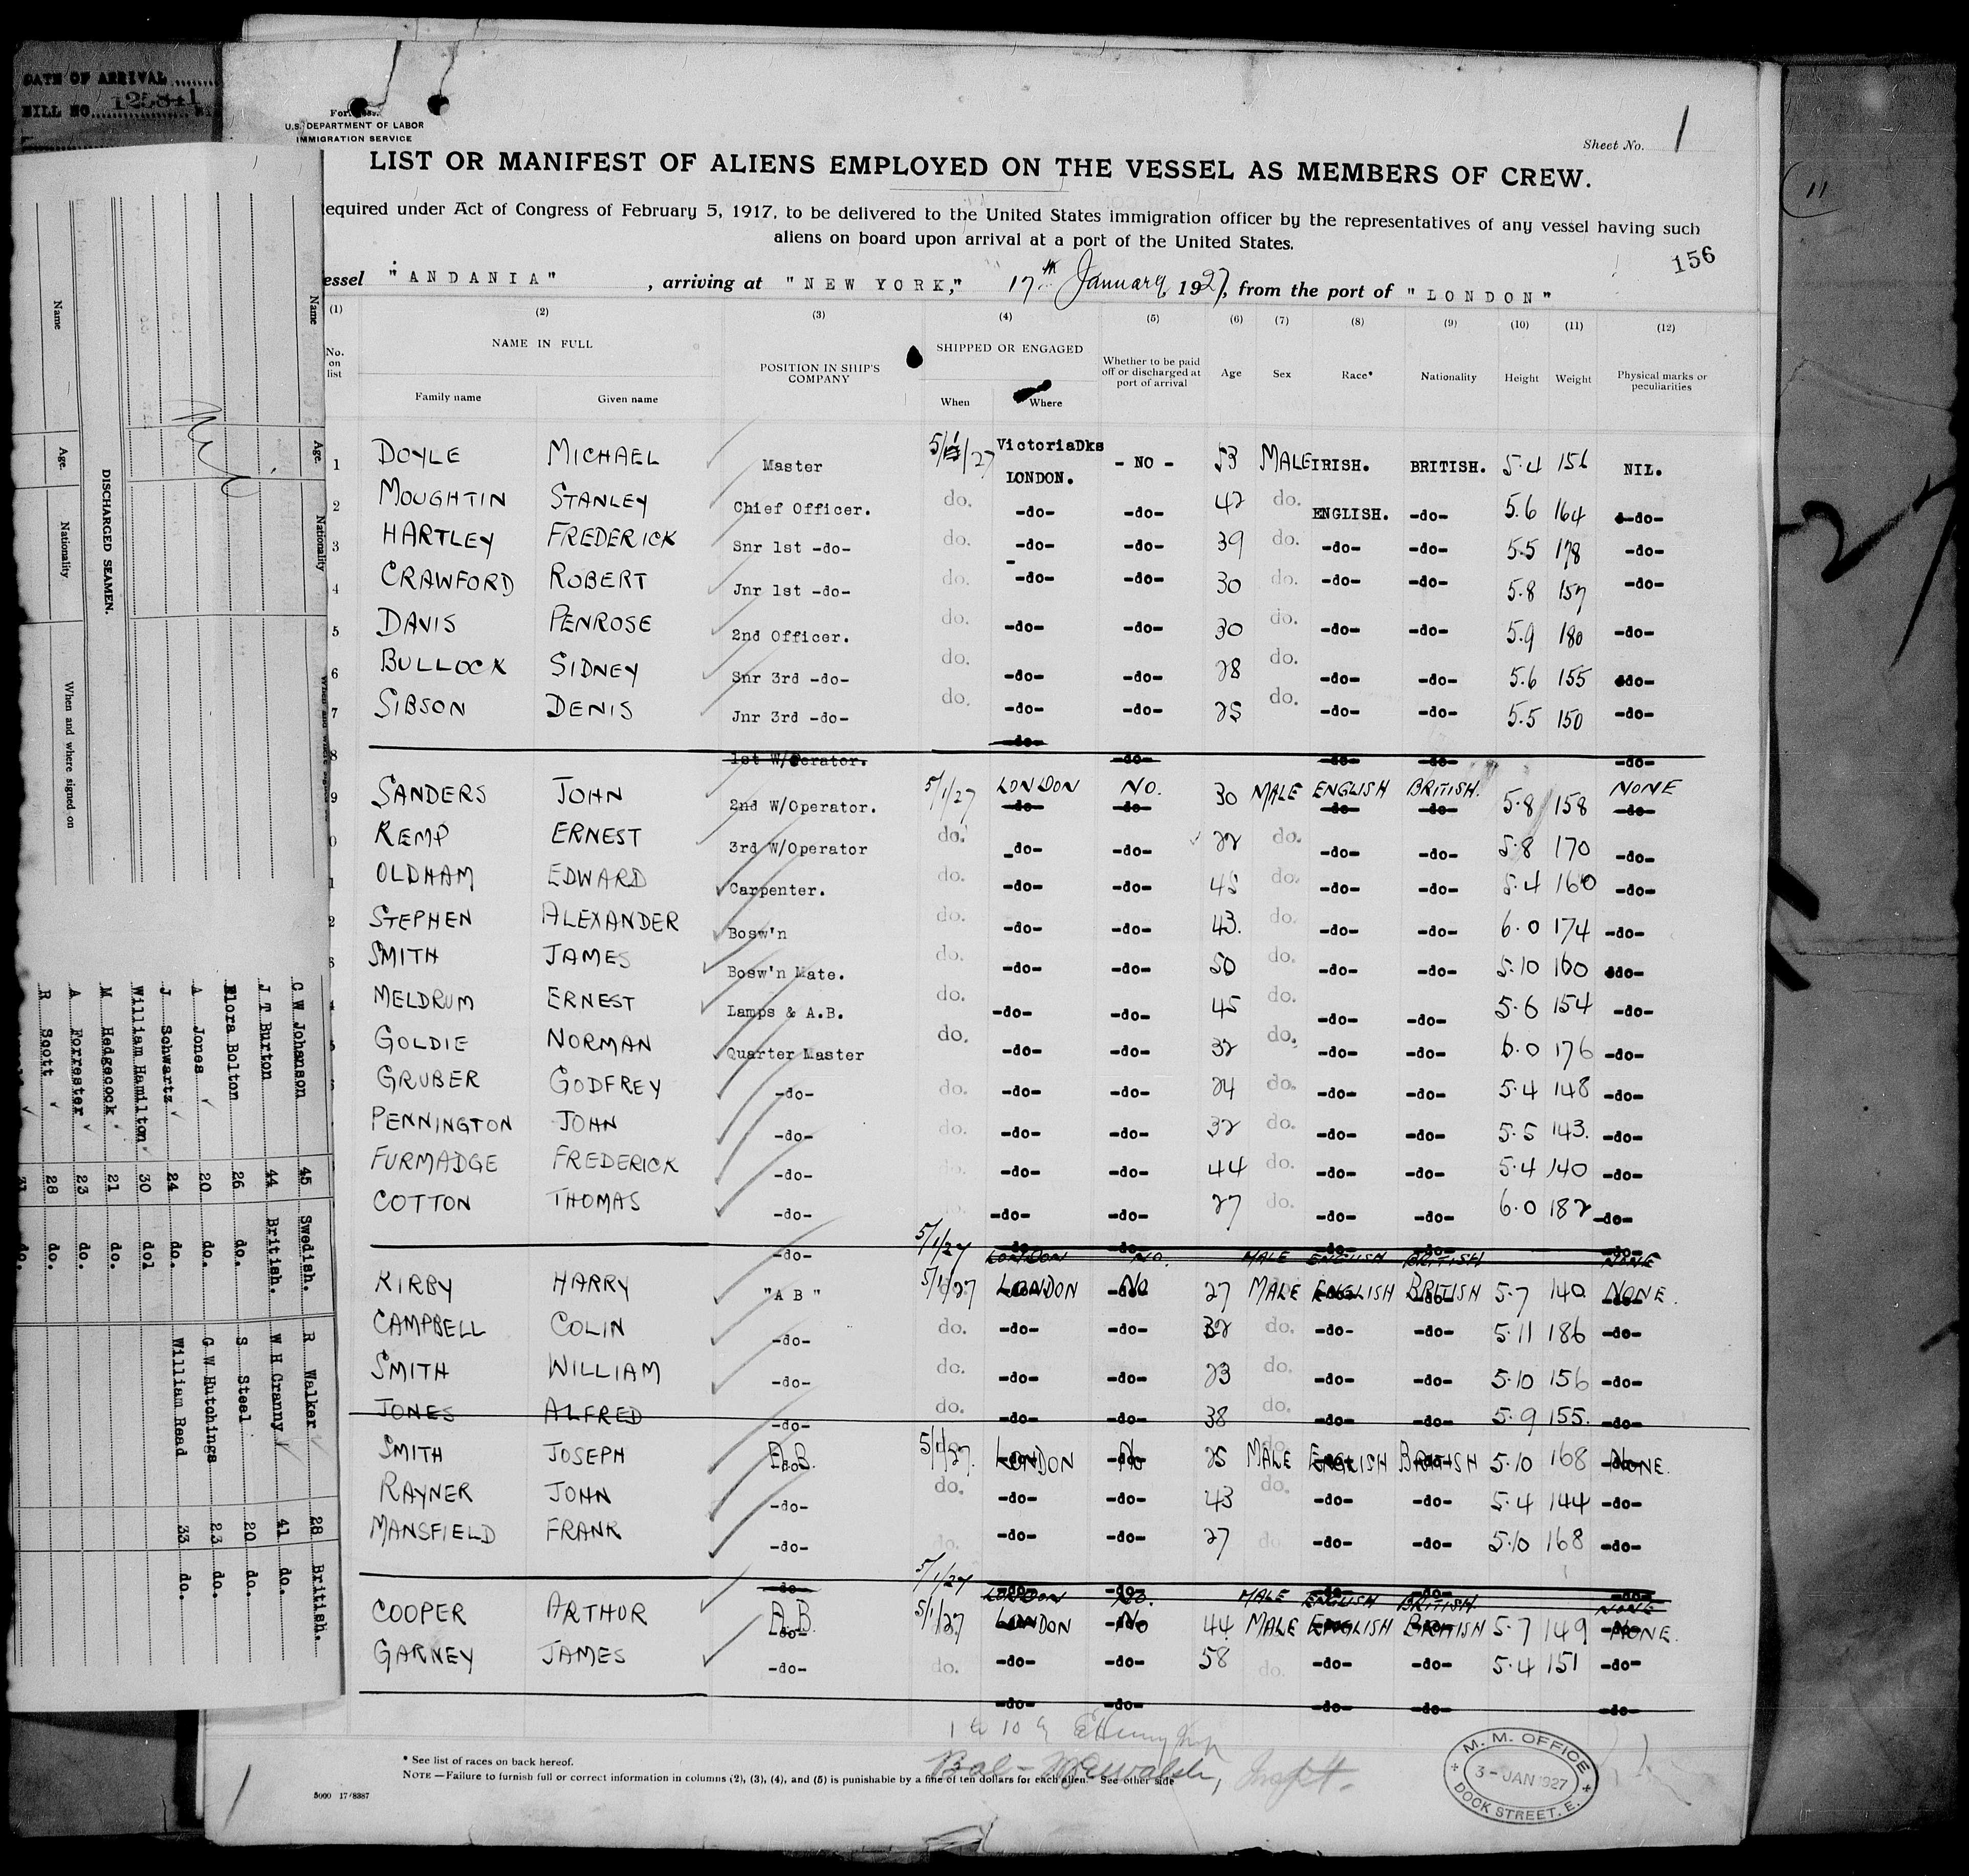 DATE OF ARRIVAL
BILL NO. 125841
U.S. DEPARTMENT OF LABOR
IMMIGRATION SERVICE
Sheet No. 1
LIST OR MANIFEST OF ALIENS EMPLOYED ON THE VESSEL AS MEMBERS OF CREW.
equired under Act of Congress of February 5, 1917, to be delivered to the United States immigration officer by the representatives of any vessel having such
aliens on board upon arrival at a port of the United States.
156
essel "ANDANIA", arriving at "NEW YORK," 17th January, 1927, from the port of "LONDON"
(1) (2) (3) (4) (5) (6) (7) (8) (9) (10) (11) (12)
No. on list NAME IN FULL POSITION IN SHIP'S COMPANY SHIPPED OR ENGAGED Whether to be paid off or discharged at port of arrival Age Sex Race* Nationality Height Weight Physical marks or peculiarities
Family name Given name When Where
1 DOYLE MICHAEL Master 5/1/27 VictoriaDks LONDON. - NO - 53 MALE IRISH. BRITISH. 5.4 156 NIL.
2 MOUGHTIN STANLEY Chief Officer. do. -do- -do- 42 do. ENGLISH. -do- 5.6 164 -do-
3 HARTLEY FREDERICK Snr 1st -do- do. -do- -do- 39 do. -do- -do- 5.5 178 -do-
4 CRAWFORD ROBERT Jnr 1st -do- do. -do- -do- 30 do. -do- -do- 5.8 157 -do-
5 DAVIS PENROSE 2nd Officer. do. -do- -do- 30 do. -do- -do- 5.9 180 -do-
6 BULLOCK SIDNEY Snr 3rd -do- do. -do- -do- 28 do. -do- -do- 5.6 155 -do-
7 SIBSON DENIS Jnr 3rd -do- do. -do- -do- 25 do. -do- -do- 5.5 150 -do-
8 1st W/Operator. -do- -do- -do- -do- -do-
9 SANDERS JOHN 2nd W/Operator. 5/1/27 LONDON NO. 30 MALE ENGLISH BRITISH. 5.8 158 NONE
0 KEMP ERNEST 3rd W/Operator do. -do- -do- 22 do. -do- -do- 5.8 170 -do-
1 OLDHAM EDWARD Carpenter. do. -do- -do- 45 do. -do- -do- 5.4 160 -do-
2 STEPHEN ALEXANDER Bosw'n do. -do- -do- 43. do. -do- -do- 6.0 174 -do-
SMITH JAMES Bosw'n Mate. do. -do- -do- 50 do. -do- -do- 5.10 160 -do-
MELDRUM ERNEST Lamps & A.B. do. -do- -do- 45 do. -do- -do- 5.6 154 -do-
GOLDIE NORMAN Quarter Master do. -do- -do- 32 do. -do- -do- 6.0 176 -do-
GRUBER GODFREY -do- do. -do- -do- 24 do. -do- -do- 5.4 148 -do-
PENNINGTON JOHN -do- do. -do- -do- 32 do. -do- -do- 5.5 143. -do-
FURMADGE FREDERICK -do- do. -do- -do- 44 do. -do- -do- 5.4 140 -do-
COTTON THOMAS -do- -do- -do- 27 do. -do- -do- 6.0 182 -do-
-do- 5/1/27 LONDON NO. MALE ENGLISH BRITISH NONE
KIRBY HARRY "A B" 5/1/27 LONDON NO 27 MALE ENGLISH BRITISH 5.7 140 NONE.
CAMPBELL COLIN -do- do. -do- -do- 32 do. -do- -do- 5.11 186 -do-
SMITH WILLIAM -do- do. -do- -do- 23 do. -do- -do- 5.10 156 -do-
JONES ALFRED -do- do. -do- -do- 38 do. -do- -do- 5.9 155. -do-
SMITH JOSEPH A.B. 5/1/27. LONDON NO 25 MALE ENGLISH BRITISH 5.10 168 NONE.
RAYNER JOHN -do- do. -do- -do- 43 do. -do- -do- 5.4 144 -do-
MANSFIELD FRANK -do- do. -do- -do- 27 do -do- -do- 5.10 168 -do-
-do- 5/1/27 LONDON NO. MALE ENGLISH BRITISH. NONE
COOPER ARTHUR A.B. 5/1/27 LONDON NO 44 MALE ENGLISH BRITISH 5.7 149 NONE.
GARNEY JAMES -do- do. -do- -do- 58 do. -do- -do- 5.4 151 -do-
-do- -do- -do- -do- -do-
1 to 10
* See list of races on back hereof.
NOTE —Failure to furnish full or correct information in columns (2), (3), (4), and (5) is punishable by a fine of ten dollars for each alien. See other side
5000 17/8387
M. M. OFFICE
3 - JAN 1927
DOCK STREET. E.
(11
27
DISCHARGED SEAMEN.
Name Age. Nationality When and where signed on
Name Age. Nationality
C W Johanson 45 Swedish.
J T Burton 44 British.
Flora Bolton 26 do.
A Jones 20 do.
J Schwartz 24 do.
William Hamilton 30 dol
M Hedgecock 21 do.
A Forrester 23 do.
R Scott 28 do.
31 do.
R Walker 28 British.
W H Cranny 41 do.
S Steel 20 do.
G W Hutchings 23 do.
William Read 33 do.